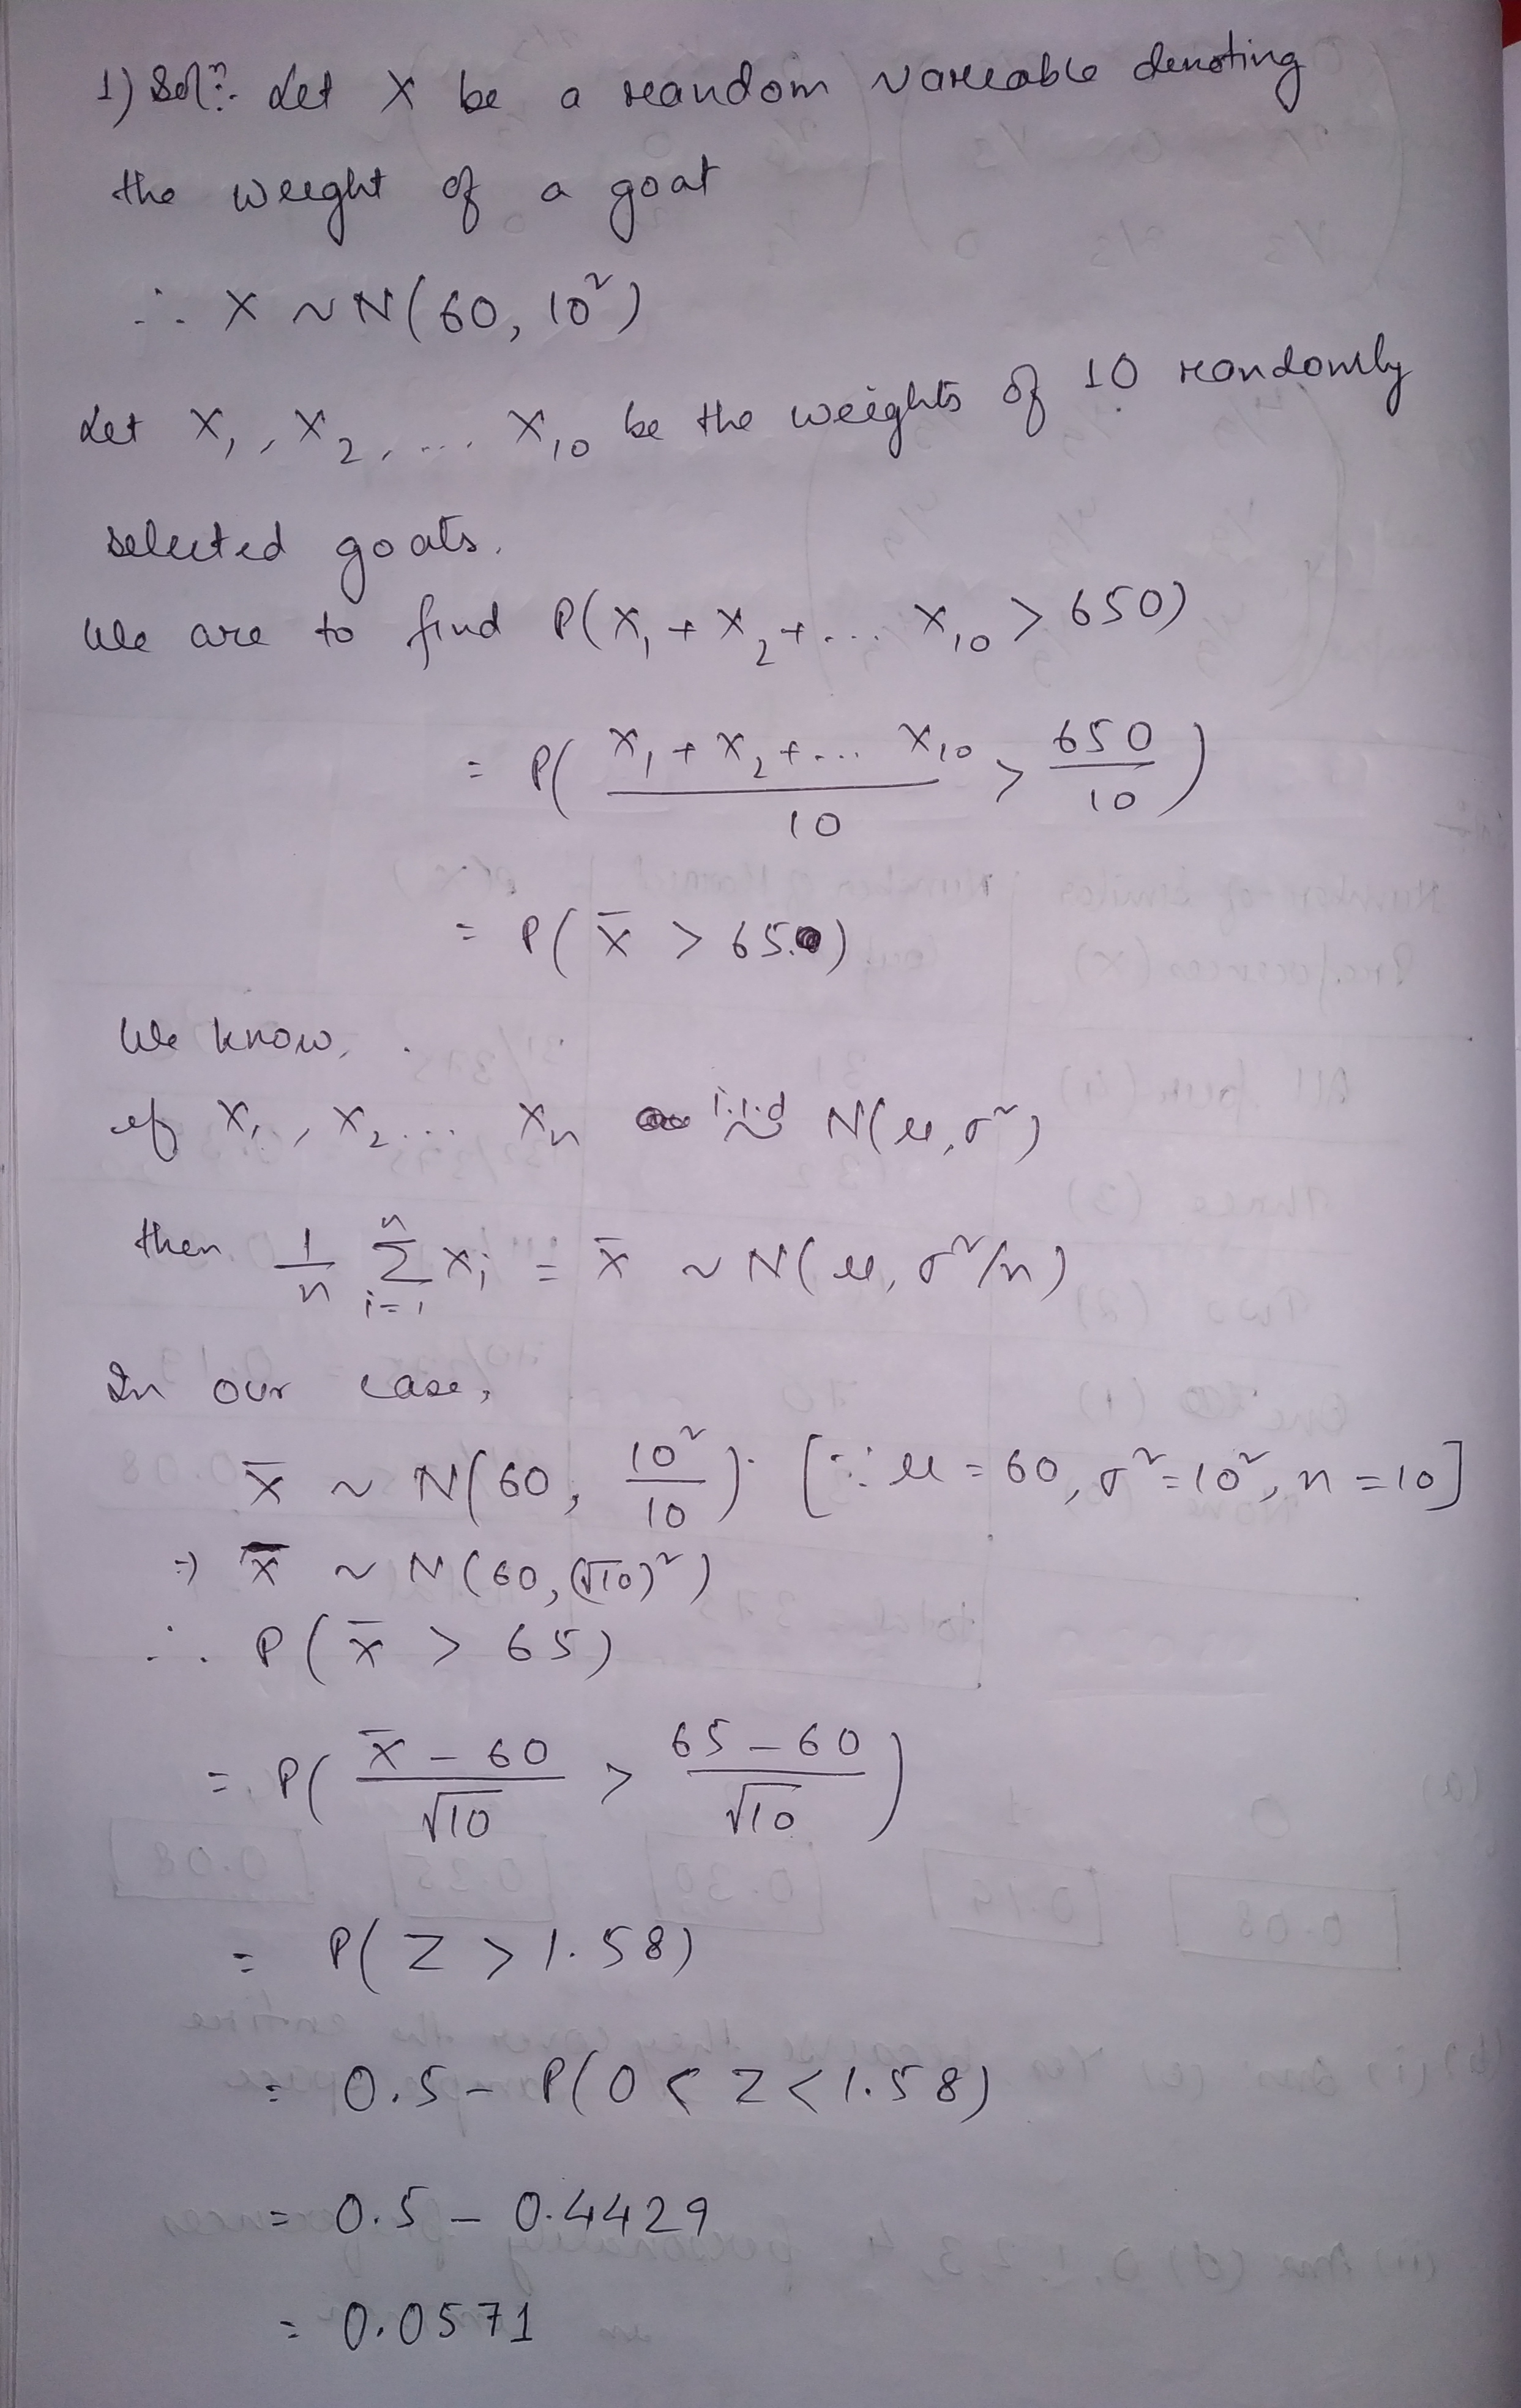 1) Solⁿ:- Let X be a random variable denoting
the weight of a goat
∴ X ~ N(60, 10²)
Let X₁, X₂, ... X₁₀ be the weights of 10 randomly
selected goats.
We are to find P(X₁ + X₂ + ... X₁₀ > 650)
= P( (X₁ + X₂ + ... X₁₀)/10 > 650/10 )
= P( X̄ > 65 )
We know,
if X₁, X₂ ... Xₙ i.i.d ~ N(μ, σ²)
then 1/n Σⁿᵢ₌₁ Xᵢ = X̄ ~ N(μ, σ²/n)
In our case,
X̄ ~ N(60, 10²/10) [∵ μ = 60, σ² = 10², n = 10]
⇒ X̄ ~ N(60, (√10)²)
∴ P( X̄ > 65)
= P( (X̄ – 60)/√10 > (65 – 60)/√10 )
= P( Z > 1.58)
= 0.5 – P(0 < Z < 1.58)
= 0.5 – 0.4429
= 0.0571